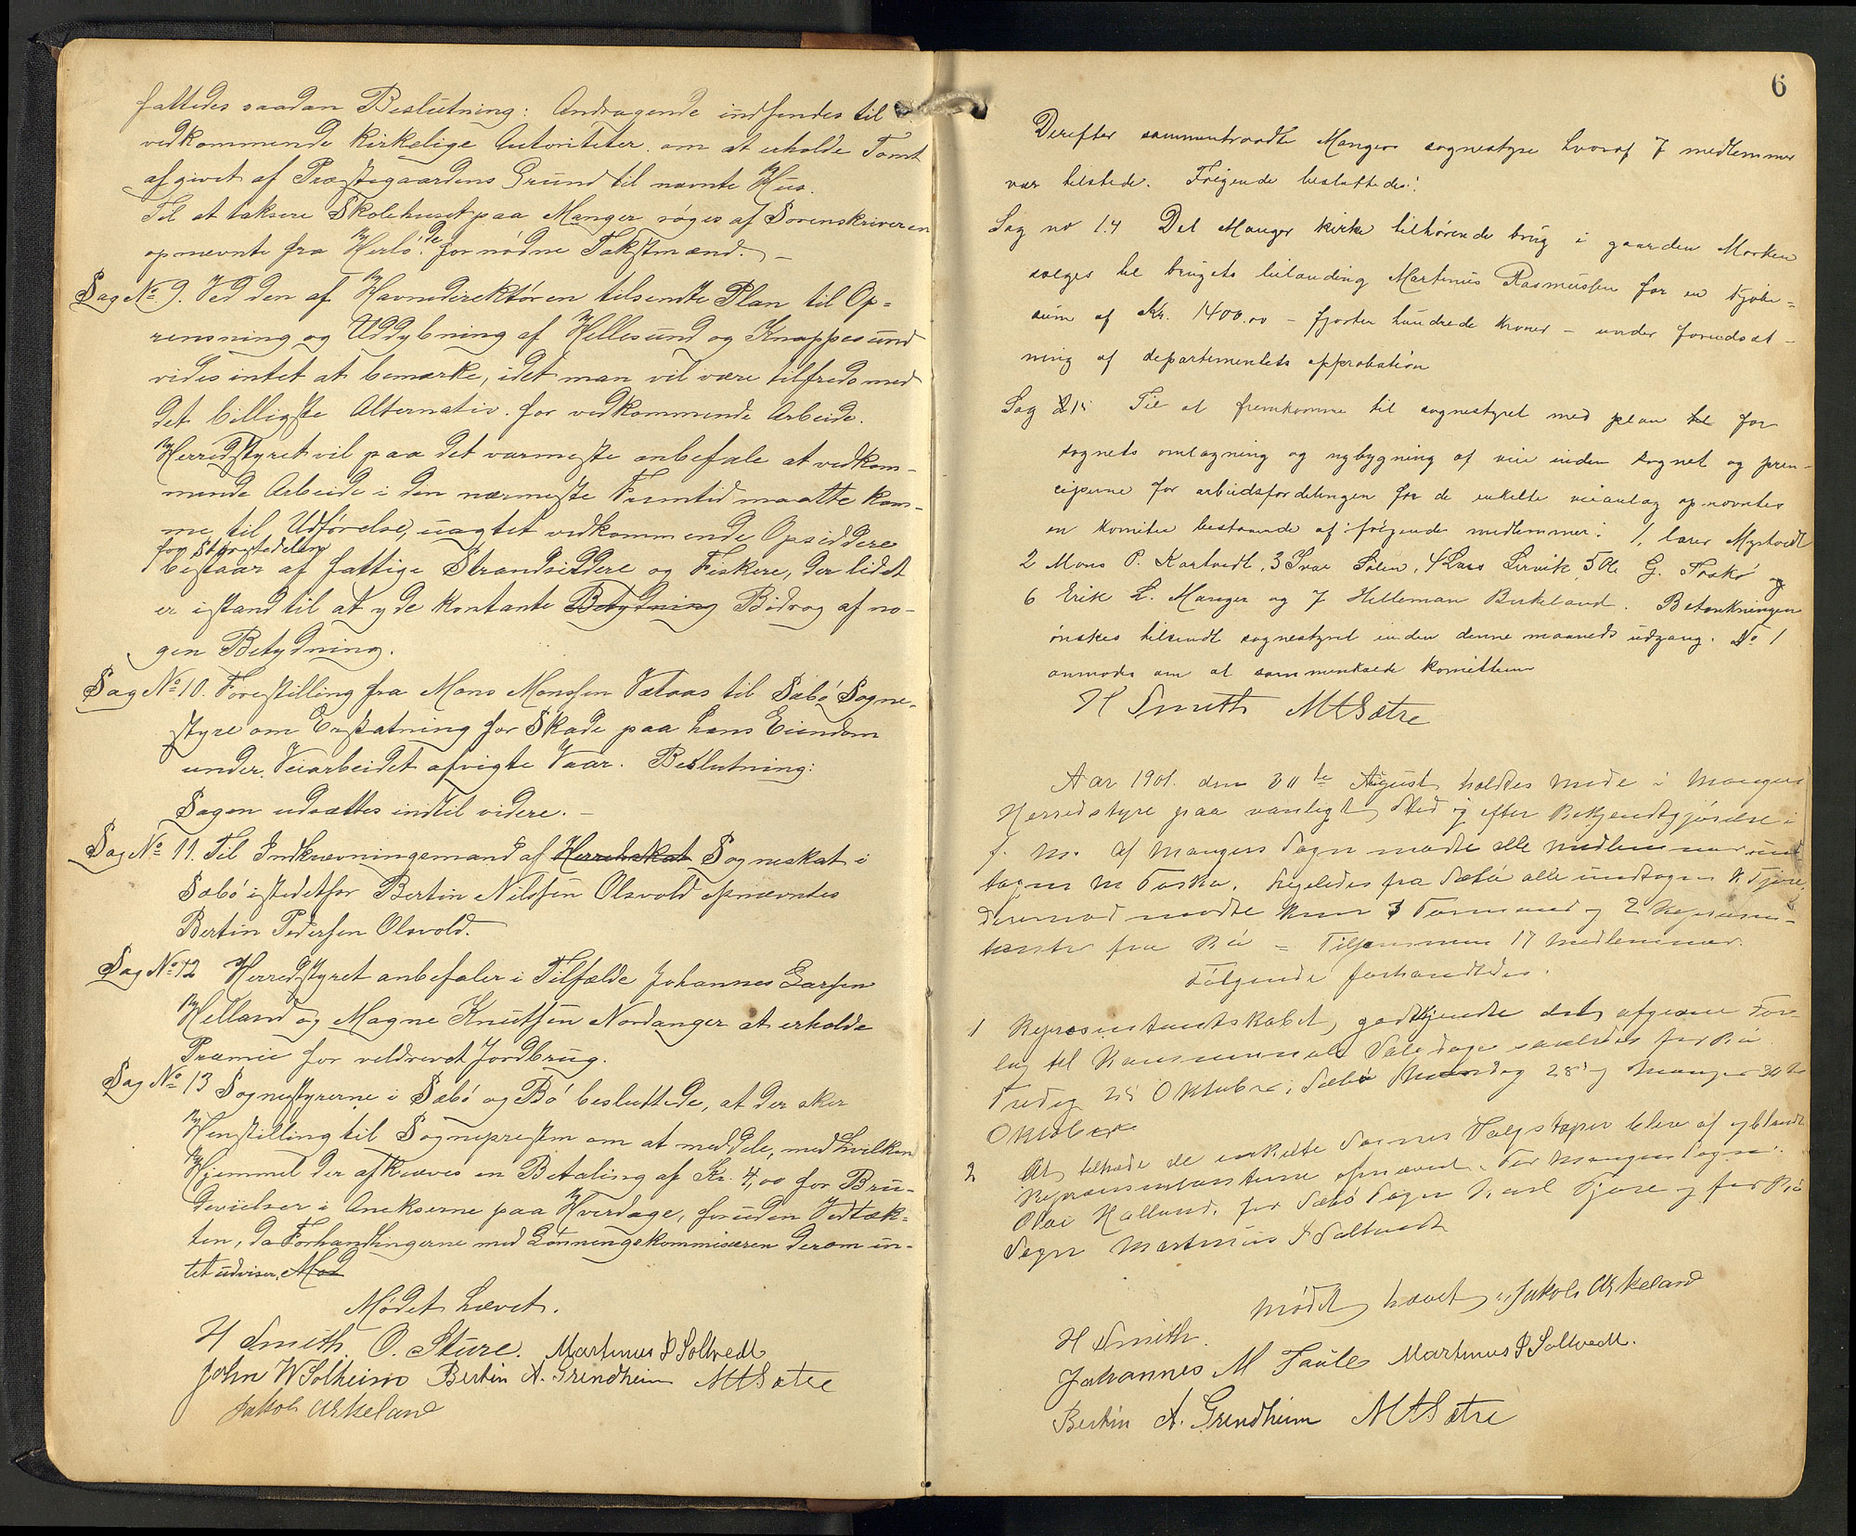 fattedes saadan Beslutning: Andragende indsendes til
vedkommende kirkelige Autoriteter om at erholde Tomt
afgivet af Præstegaardens Grund til nævnte Hus.
Til at taksere Skolehuset paa Manger søges af Sorenskriveren
opnævnte fra Herlø de fornødne Takstmænd. –
Sag No 9. Ved den af Havnedirektøren tilsendte Plan til Op-
rensning og Uddybning af Hellesund og Knappesund
vides intet at bemærke, idet man vil være tilfreds med
det billigste Alternativ for vedkommende Arbeide.
Herredstyret vil paa det varmeste anbefale at vedkom-
mende Arbeide i den nærmeste Fremtid maatte kom-
me til Udførelse, uagtet vedkommende Opsiddere
for Størstedelen
bestaar af fattige Strandsiddere og Fiskere, der lidet
er istand til at yde kontante Betydning Bidrag af no-
gen Betydning.
Sag No 10. Forestilling fra Mons Monssen Vetaas til Sæbø Sogne-
styre om Erstatning for Skade paa hans Eiendom
under Veiarbeidet afvigte Vaar. Beslutning:
Sagen udsættes indtil videre. –
Sag No 11. Til Indkrævningsmand af Herredskat Sogneskat i
Sæbø istedetfor Bertin Nilssen Olsvold opnævntes
Bertin Pedersen Olsvold.
Sag No 12 Herredstyret anbefaler i Tilfælde Johannes Larsen
Helland og Magne Knutsen Nordanger at erholde
Præmie for veldrevet Jordbrug.
Sag No 13 Sognestyrerne i Sæbø og Bø besluttede, at der sker
Henstilling til Sognepresten om at meddele, med hvilken
Hjemmel der afkræves en Betaling af Kr. 4,00 for Bru-
devielser i Anekserne paa Hverdage, foruden Vedtæk-
ten, da Forhandlingerne med Lønningskommisæren derom in-
tet udviser. Mød
Mødet hævet.
H Smith. O. Sture. Martinus J Soltvedt
John W Solheim Bertin A. Grindheim MASætre
Jakob Askeland
6
Derefter sammentraadte Mangers sognestyre hvoraf 7 medlemmer
var tilstede. Følgende besluttedes:
Sag no 14 Det Manger kirke tilhørende brug i gaarden Morken
sælges til brugets leilænding Martinus Rasmussen for en kjøbe-
sum af Kr. 1400.00 – fjorten hundrede kroner – under forudsæt-
ning af departementets approbation
Sag 15 Til at fremkomme til sognestyret med plan til for
sognets omlægning og nybygning af veie inden sognet og prin-
ciperne for arbeidsfordelingen for de enkelte veianlæg opnævntes
en komite bestaaende af følgende medlemmer: 1, lærer Mykvedt
2 Mons P. Kartvedt, 3 Ivar Solem, 4 Lars Lervik, 5 Ole G. Toskø og
6 Erik L. Manger og 7 Helleman Birkeland. Betænkningen
ønskes tilsendt sognestyret inden denne maaneds udgang. No 1
anmodes om at sammenkalde komitteen
H Smith MASætre
Aar 1901. den 30te August holdtes Møde i Mangers
Herredsstyre paa vanligt Sted og efter Bekjendtgjørelse i
f. M. af Mangers Sogn mødte alle Medlemmer und
tagen M Toska. Ligeledes fra Sæbø alle undtagen K Fjære,
derimod mødte kun 3 Formænd og 2 Repræsen-
tanter fra Bø = Tilsammen 17 Medlemmer.
Følgende forhandledes.
1 Repræsentantskabet godkjendte det afgivne For
lag til Kommunale Valgdage saaledes for Bø
Fredag 25 Oktober, Sæbø Mandag 28 og Manger 30te
Oktober
2 At tiltræde de enkelte Sognes Valgstyrer blev af iblandt
Repræsentanterne opnævnt. For Mangers Sogn:
Olai Halland, for Sæbø Sogn Karl Fjære og for Bø
Sogn Martinus J Soltvedt
Mødet hævet. Jakob Askeland
H Smith.
Johannes M Taule Martinus J Soltvedt.
Bertin A. Grindheim MASætre